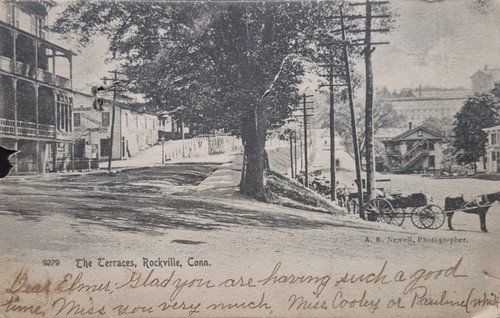 A. R. Newell, Photographer.
9279 The Terraces, Rockville, Conn.
Dear Elmer, Gladyou are having such a good
time. Miss you very much, Miss Cooley or Pauline (which